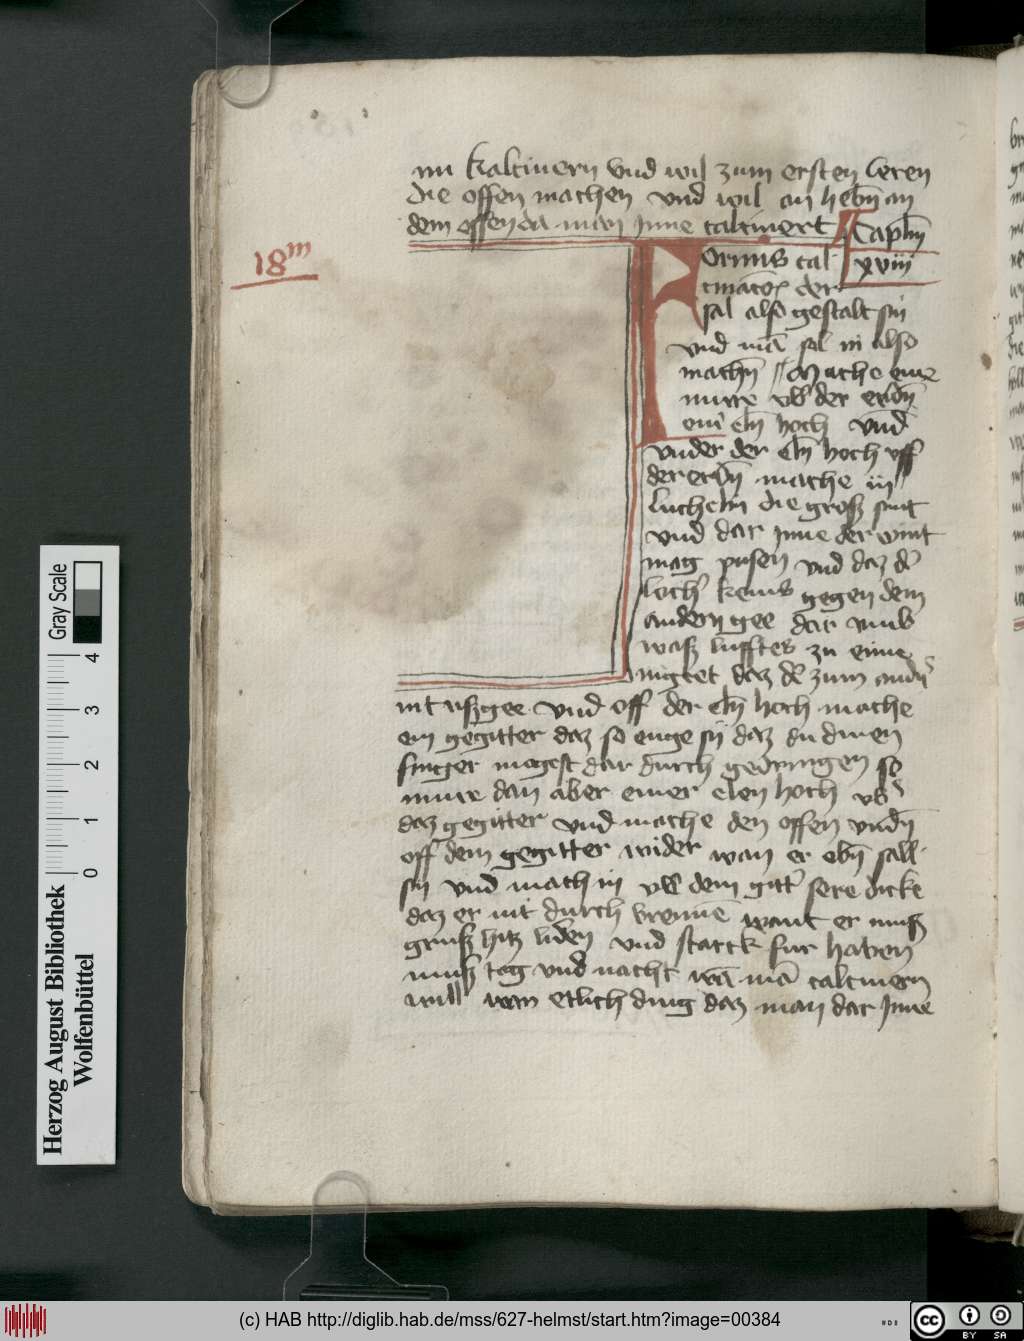 im kalcinern vnd wil zum ersten leren
die offen machen vnd wil an hebn̄ an
dem offen da man Inne calcinert Caplm̄
xviii
18m
Fornus cal
cinacōis der
sal also gestalt sin
vnd mā sol in also
machn̄ Mache eine
mure vb͛ der erdn̄
eini eln̄ hoch vnd
vnder der eln̄ hoch vff
der erdn̄ mache iii
luchelin die groß sint
vnd dar Inne der wint
mag pusen vnd daz d͛
loch͛ keins gegen dem
andern gee dar vmb
waß lufftes zu eime
inget daz d͛ zum and͛n
nit vßgee vnd off der eln̄ hoch mache
ein gegitter daz so enge sy daz du dinen
finger mogest dar durch gedringen so
mure dan aber einer elen hoch vb͛
daz gegitter vnd mache den offen vndn̄
off dem gegitter wider wan er ebn̄ sall
sin vnd mach in vb͛ dem gitt͛ sere dicke
daz er nit durch brennē want er muß
gruß hitz liden vnd starck fur haben
muß tag vnd nacht wā mā calcinern
will wan etlich ding daz man dar Inne
Gray Scale
4
3
2
1
0
Herzog August Bibliothek
Wolfenbüttel
(c) HAB http://diglib.hab.de/mss/627-helmst/start.htm?image=00384
cc BY SA